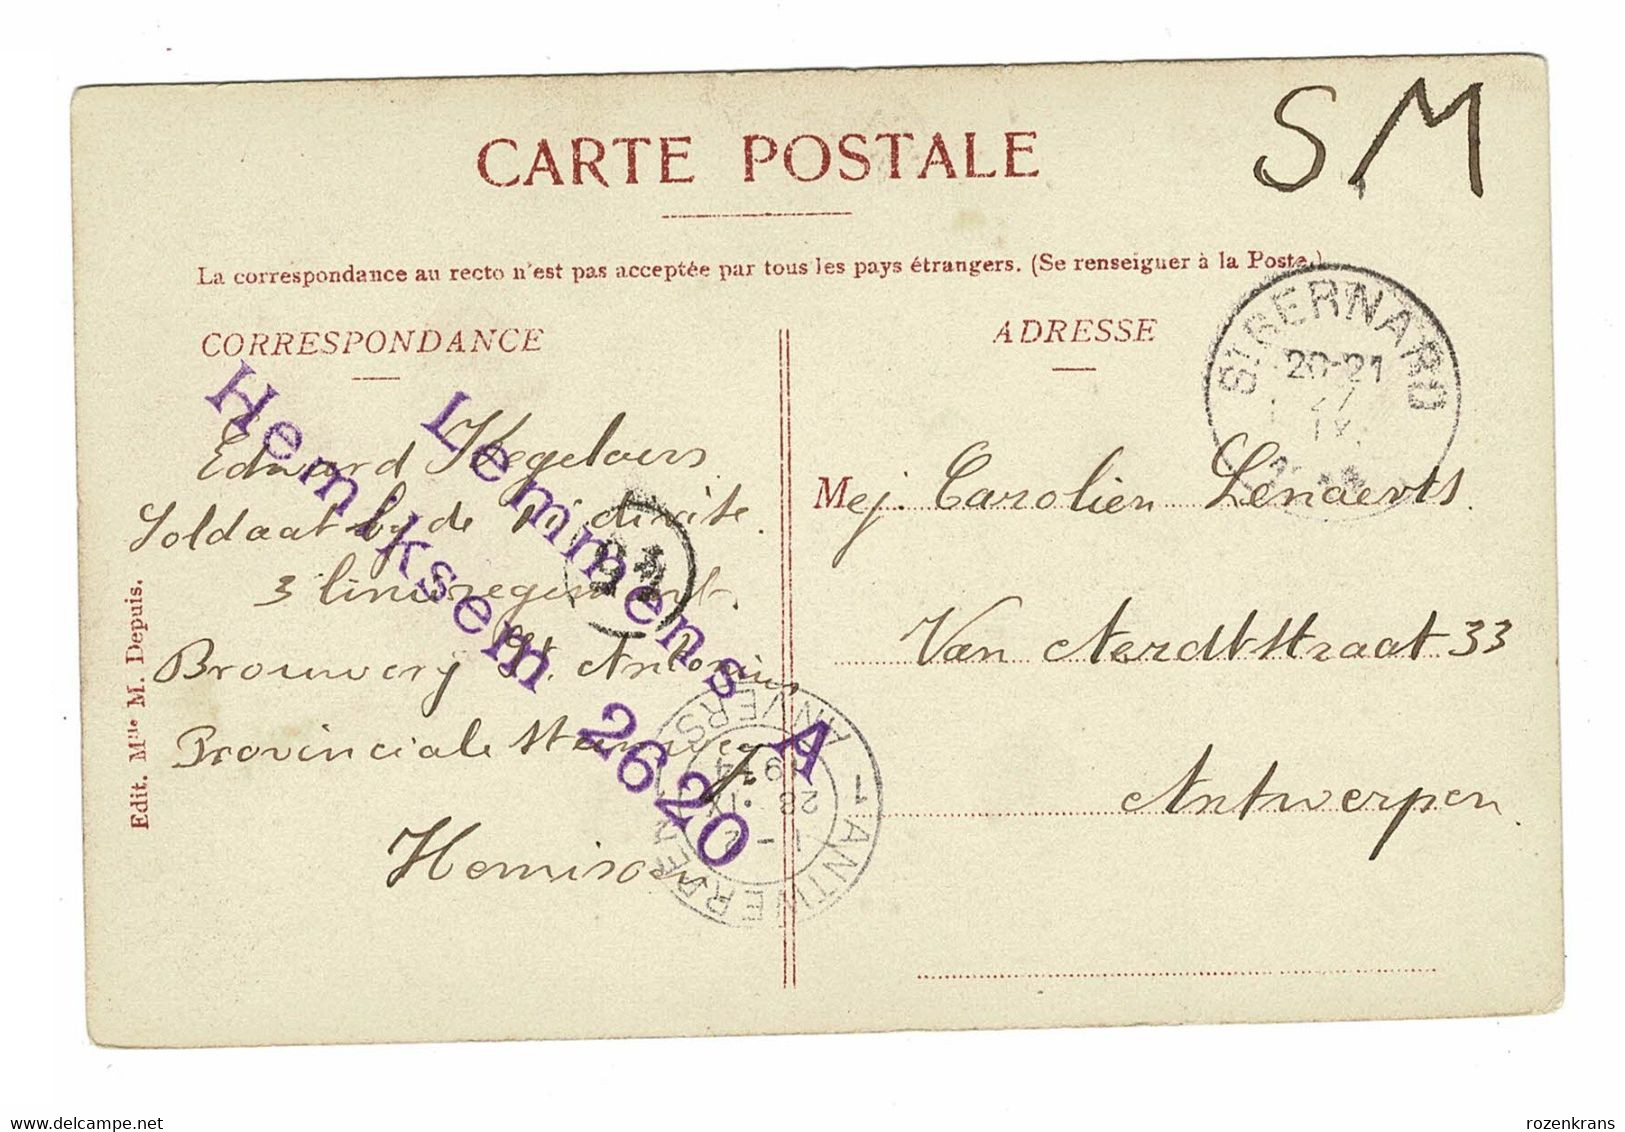 SM
CARTE POSTALE
La correspondance au recto n'est pas acceptée par tous les pays étrangers. (Se renseigner à la Poste.)
CORRESPONDANCE
ADRESSE
ST BERNARD
20-21
27
IX
Edward Kegelaers
Soldaat by de divise
3 linieregiment
Brouwery St. Antonius
Provinciale Steenweg
Hemixem
Lemmens A
Hemiksem 2620
Mej. Carolien Lenaerts.
Van Aerdtstraat 33
Antwerpen
1 ANTWERPEN 1 ANVERS
28
Edit. Mlle M. Depuis.
rozenkrans